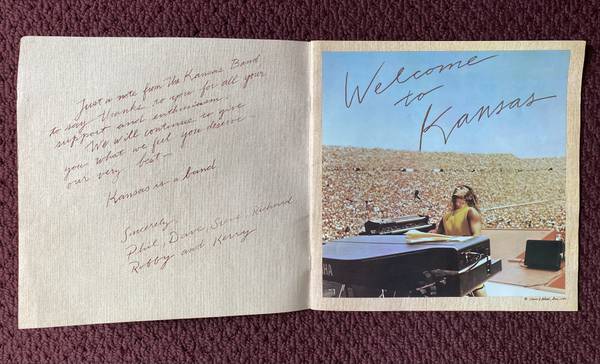 Just a note from The Kansas Band
to say thanks to you for all your
support and enthusiasm.
We will continue to give
you what we feel you deserve
our very best—
Kansas is a band
Sincerely,
Phil, Dave, Steve, Richard
Robby and Kerry
Welcome
to
Kansas
YAMAHA